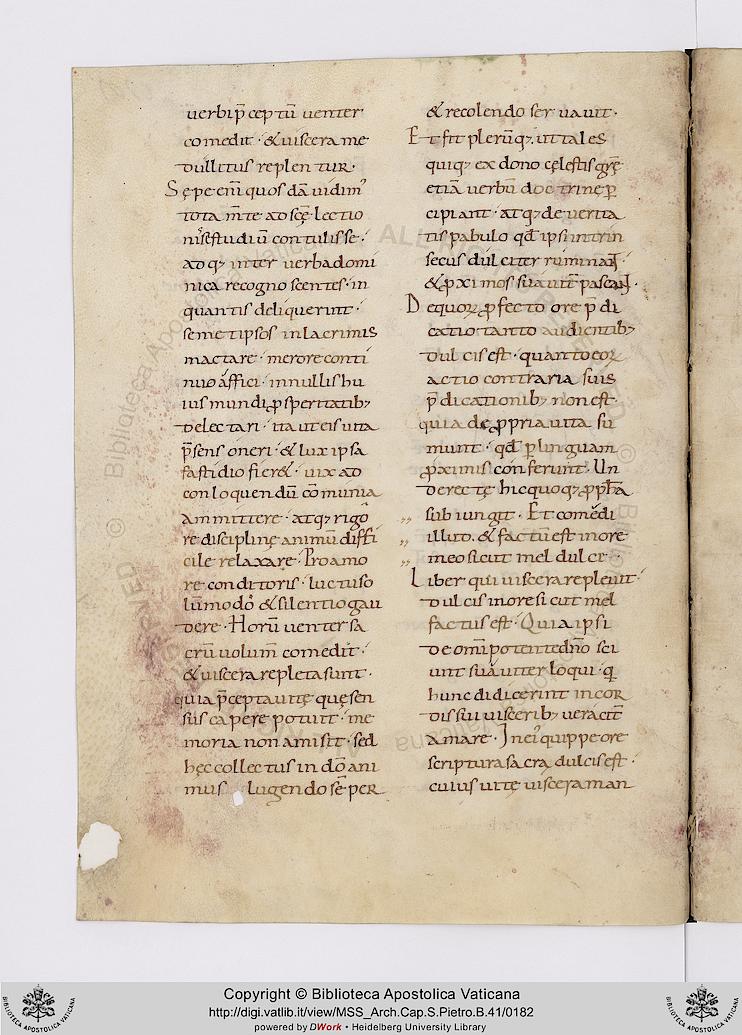 uerbi p̄ceptū uenter
comedit · & uiscera me
dullitus replentur ·
Sępe eni᷒ quos dā uidim᷒
tota m̄te ad scę̄ lectio
nis studiū contulisse ·
adq; inter uerba domi
nica recognoscentes · in
quantis deliquerint ·
semetipsos in lacrimis
mactare · merore conti
nuo affici · in nullis hu
ius mundi ꝓsperitatib;
delectari · ita ut eis uita
p̄sens oneri · & lux ipsa
fastidio fier& · uix ad
conloquendū cōmunia
ammittere · atq; rigo
re disciplinę animū diffi
cile relaxare · Pro amo
re conditoris · luctu so
lūmodo & silentio gau
dere · Horū uenter sa
crū uolum̄ comedit ·
& uiscera repleta sunt ·
quia p̄cepta uitę quę sen
sus capere potuit · me
moria non amisit · sed
hęc collectus in dō ani
mus lugendo sēper
& recolendo seruauit ·
Et fit plerūq; ut tales
quiq; ex dono cęlestis grę̄
etiā uerbū doctrinę ꝑ
cipiant · atq; de uerita
tis pabulo qd̄ ipsi intrin
secus dulciter ruminant
& ꝓximos suauit̄ pascant ·
De quoꝝ ꝓfecto ore p̄di
catio tanto audientib;
dulcis est · quanto eoꝝ
actio contraria suis
p̄dicationib; non est ·
quia de ꝓpria uita su
munt · qd̄ ꝑ linguam
ꝓximis conferunt · Un
de recte hic quoq; ꝓph̄a
,, subiungit · Et comēdi
,, illud · & factū est in ore
,, meo sicut mel dulce ·
Liber qui uiscera repleuit ·
dulcis in ore sicut mel
factus est · Quia ipsi
de omip̄otente dn̄o sci
unt suauiter loqui · q
hunc didicerint in cor
dis sui uisceribus ueracit̄
amare · In ei᷒ quippe ore
scriptura sacra dulcis est ·
cuius uitę uiscera man
Copyright © Biblioteca Apostolica Vaticana
http://digi.vatlib.it/view/MSS_Arch.Cap.S.Pietro.B.41/0182
powered by DWork • Heidelberg University Library